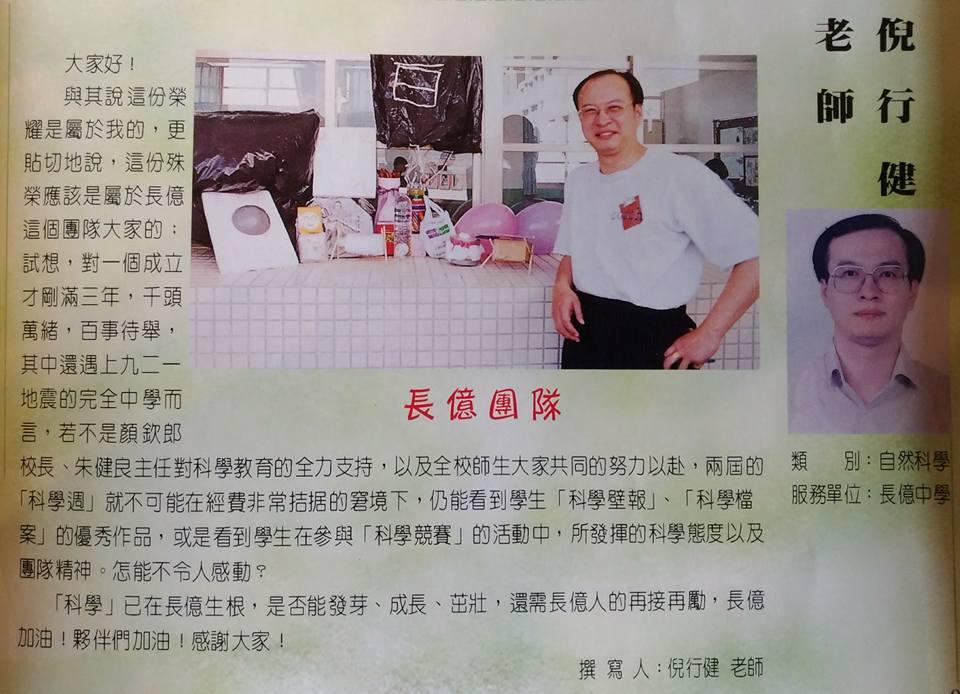 倪行健
老師
大家好！
與其說這份榮
耀是屬於我的，更
貼切地說，這份殊
榮應該是屬於長億
這個團隊大家的：
試想，對一個成立
才剛滿三年，千頭
萬緒，百事待舉，
其中還遇上九二一
地震的完全中學而
言，若不是顏欽郎
校長、朱健良主任對科學教育的全力支持，以及全校師生大家共同的努力以赴，兩屆的
「科學週」就不可能在經費非常拮据的窘境下，仍能看到學生「科學壁報」、「科學檔
案」的優秀作品，或是看到學生在參與「科學競賽」的活動中，所發揮的科學態度以及
團隊精神。怎能不令人感動？
「科學」已在長億生根，是否能發芽、成長、茁壯，還需長億人的再接再勵，長億
加油！夥伴們加油！感謝大家！
撰寫人：倪行健 老師
長億團隊
類別：自然科學
服務單位：長億中學